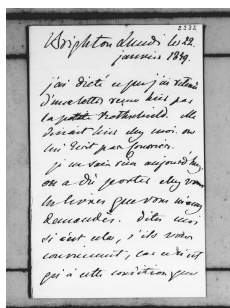 2232
Brighton Lundi le 22
janvier 1849.
j'ai dicté ce que j'ai retenu
d'une lettre reçue hier par
la petite Rothschild. Elle
dinait hier chez moi. on
lui écrit par
je ne sais rien aujourd'hui,
on a dû porter chez vous
les livres que vous m'avez
demandés. Dites moi
si c'est cela, s'ils vous
conviennent, car
qu'à cette condition que